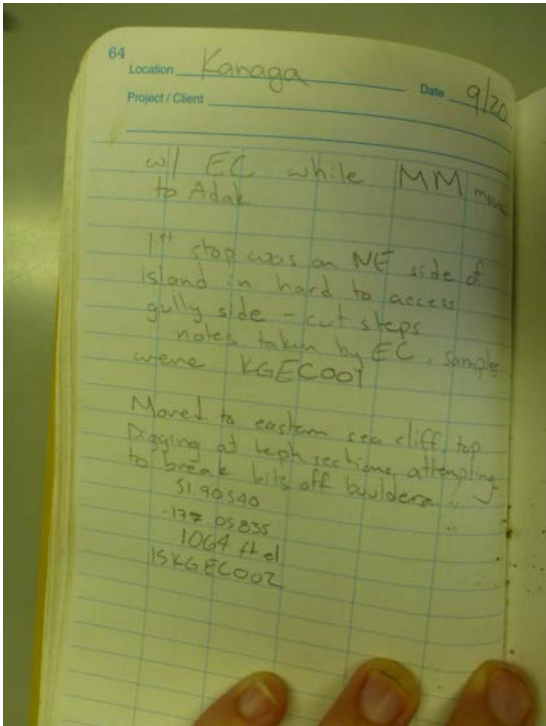 64
Location Kanaga Date 9/20
Project / Client
w/ EC while MM moves
to Adak
1st stop was on NE side of
island in hard to access
gully side - cut steps
notes taken by EC, samples
were KGEC001
Moved to eastern sea cliff top
Digging at teph sections, attempting
to break bits off boulders...
51 90540
-177 05835
1064 ft el
15KGEC002